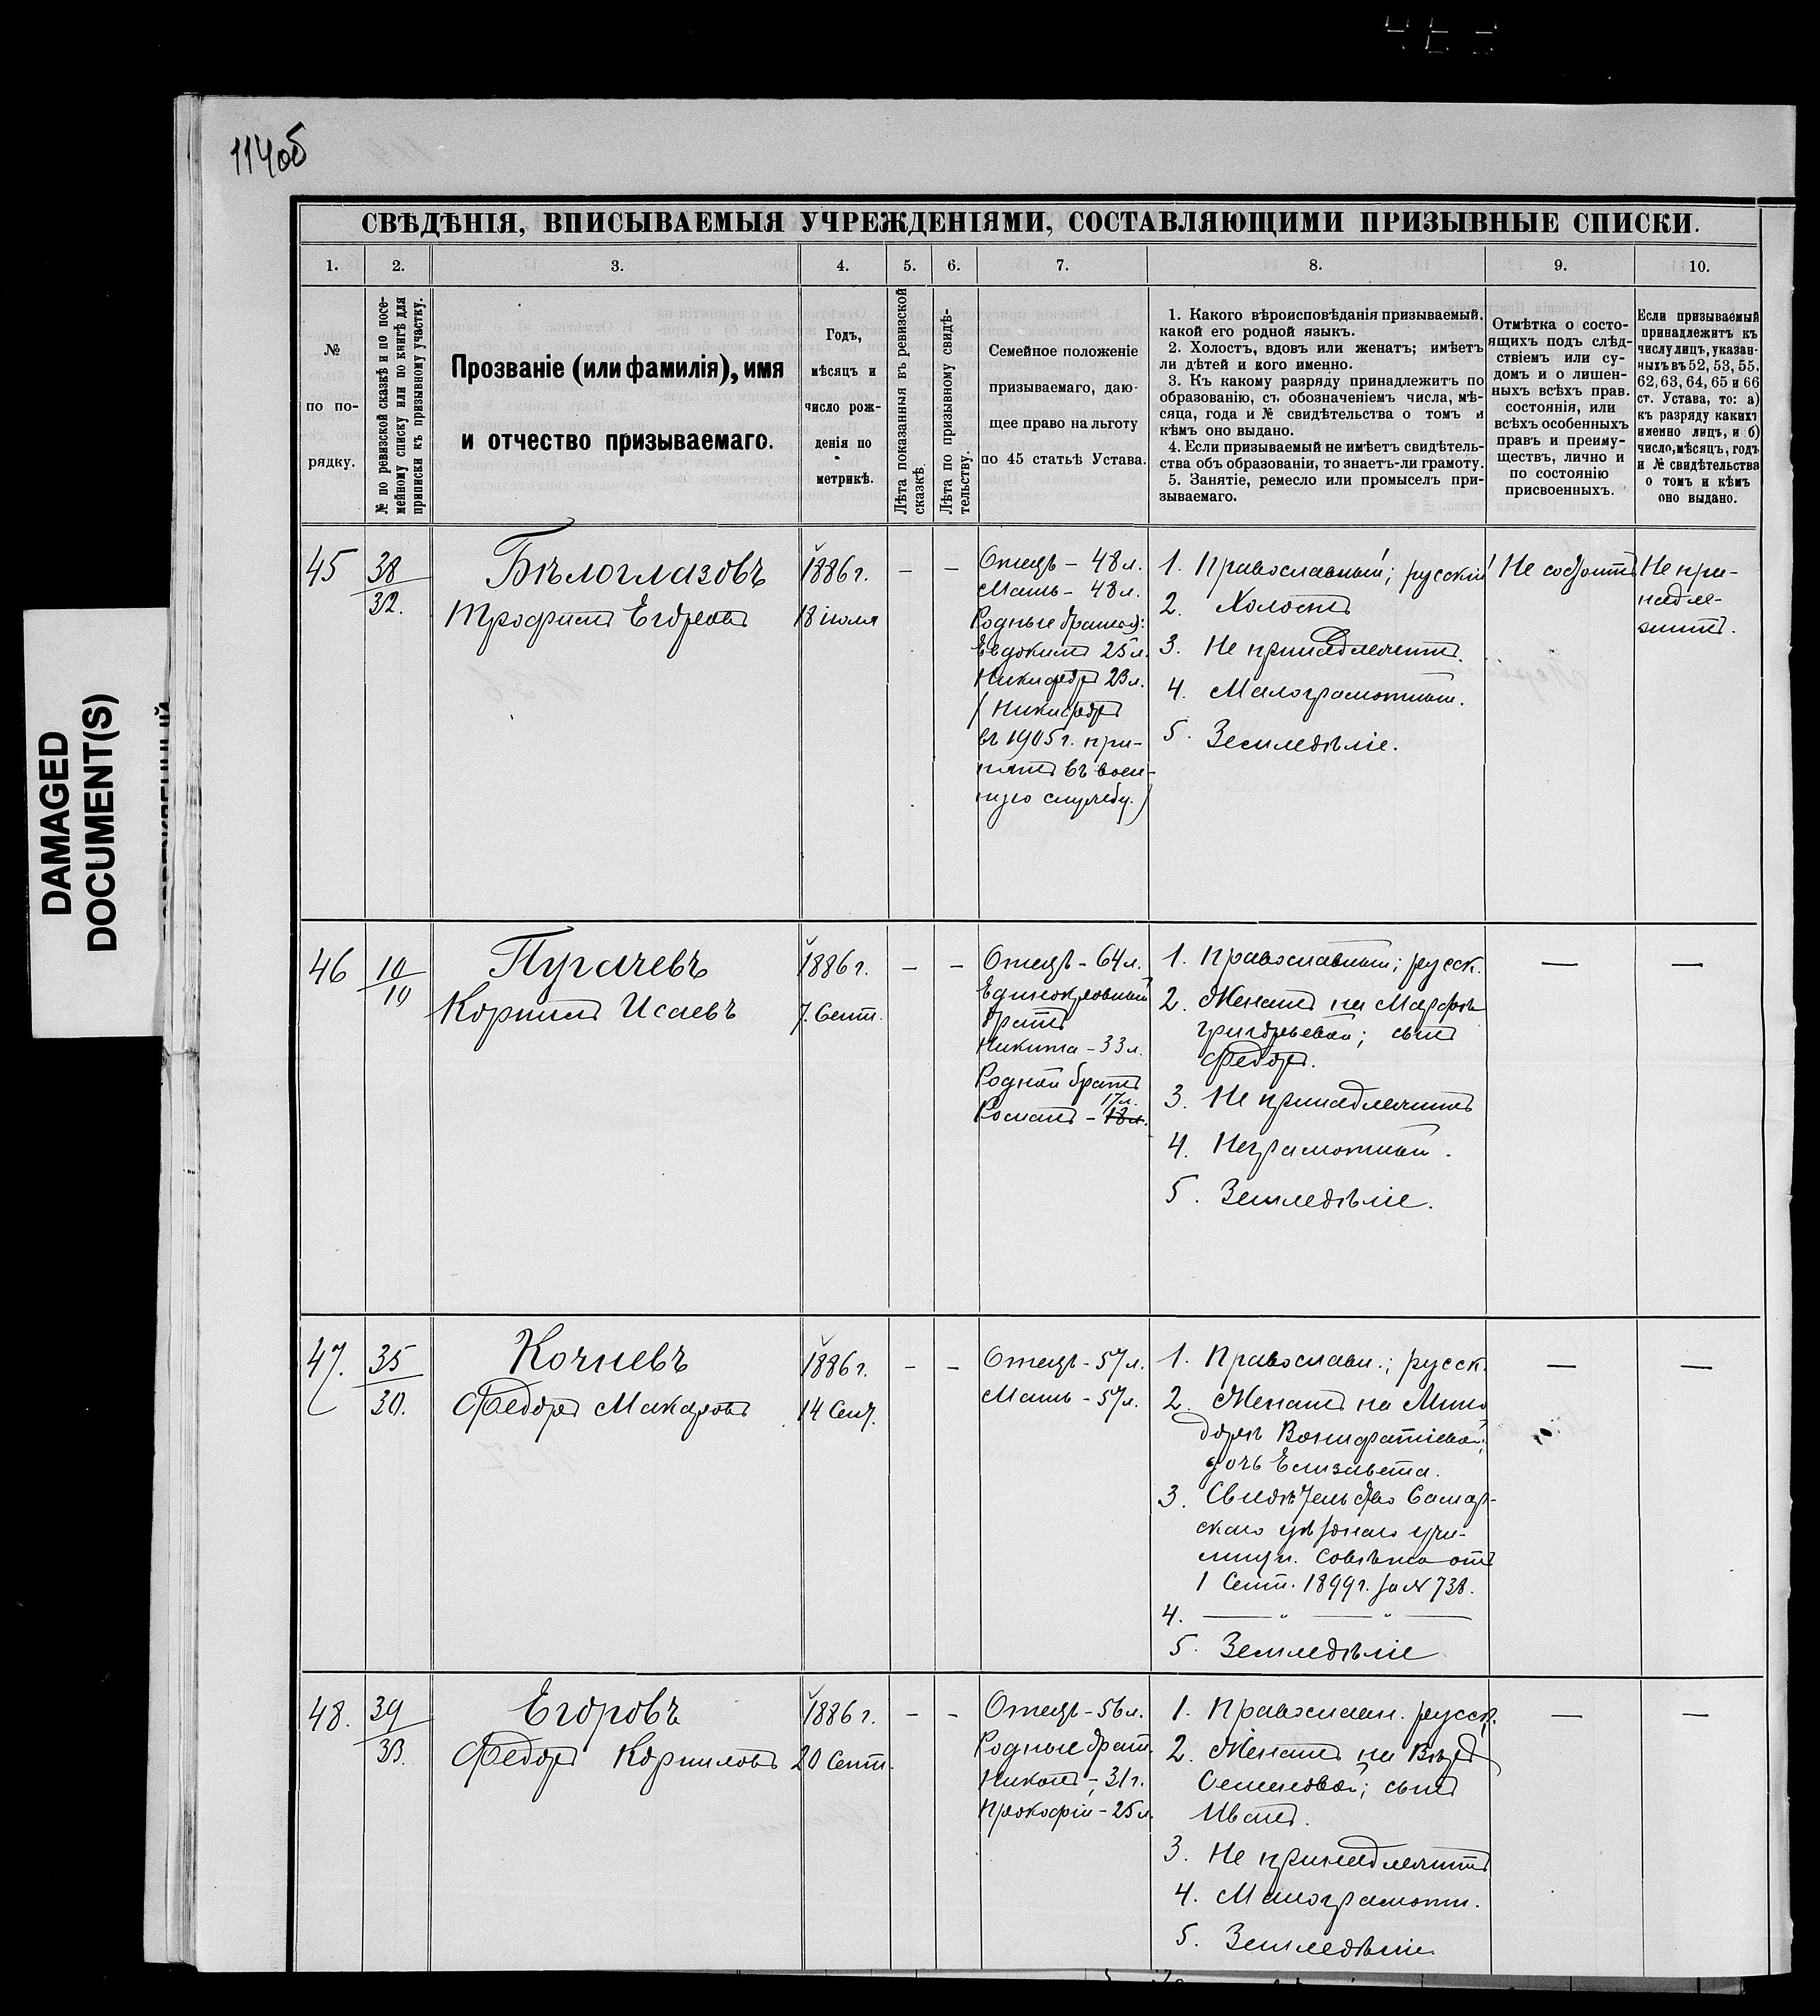 114об
DAMAGED
DOCUMENT(S)
СВѢДѢНІЯ, ВПИСЫВАЕМЫЯ УЧРЕЖДЕНІЯМИ, СОСТАВЛЯЮЩИМИ ПРИЗЫВНЫЕ СПИСКИ.
1. 2. 3. 4. 5. 6. 7. 8. 9. 10.
№
по по-
рядку.
№ по ревизской сказкѣ и по посе-
мейному списку или по книгѣ для
приписки къ призывному участку.
Прозваніе (или фамилія), имя
и отчество призываемаго.
Годъ,
мѣсяцъ и
число рож-
денія по
метрикѣ.
Лѣта показанныя въ ревизской
сказкѣ.
Лѣта по призывному свидѣ-
тельству.
Семейное положеніе
призываемаго, даю-
щее право на льготу
по 45 статьѣ Устава.
1. Какого вѣроисповѣданія призываемый,
какой его родной языкъ.
2. Холостъ, вдовъ или женатъ; имѣетъ
ли дѣтей и кого именно.
3. Къ какому разряду принадлежитъ по
образованію, съ обозначеніемъ числа, мѣ-
сяца, года и № свидѣтельства о томъ и
кѣмъ оно выдано.
4. Если призываемый не имѣетъ свидѣтель-
ства объ образованіи, то знаетъ-ли грамоту.
5. Занятіе, ремесло или промыселъ при-
зываемаго.
Отмѣтка о состо-
ящихъ подъ слѣд-
ствіемъ или су-
домъ и о лишен-
ныхъ всѣхъ прав.
состоянія, или
всѣхъ особенныхъ
правъ и преиму-
ществъ, лично и
по состоянію
присвоенныхъ.
Если призываемый
принадлежитъ къ
числу лицъ, указан-
ныхъ въ 52, 53, 55,
62, 63, 64, 65 и 66
ст. Устава, то: а)
къ разряду какихъ
именно лицъ, и б)
число, мѣсяцъ, годъ
и № свидѣтельства
о томъ и кѣмъ
оно выдано.
45
38
32.
Бѣлоглазовъ
Трофимъ Егоровъ
1886 г.
18 іюля
–
–
Отецъ – 48 л.
Мать – 48 л.
Родные братья:
Евдокимъ 25 л.
Никифоръ 23 л.
(Никифоръ
въ 1905 г. при-
нятъ въ воен-
ную службу.)
1. Православный; русскій
2. Холостъ
3. Не принадлежитъ.
4. Малограмотный.
5. Земледѣліе.
Не состоитъ
Не при-
надле-
житъ.
46
10
10
Пугачевъ
Корнилъ Исаевъ
1886 г.
7. Сент.
–
–
Отецъ – 64 л.
Единокровный
братъ
Никита – 33 л.
Родной братъ
17 л.
Романъ – 18 л.
1. Православный; русск.
2. Женатъ на Марфѣ
Григорьевой; сынъ
Федоръ.
3. Не принадлежитъ
4. Неграмотный.
5. Земледѣліе.
—
—
47.
35
30.
Кочневъ
Федоръ Макаровъ
1886 г.
14 Сент.
–
–
Отецъ – 57 л.
Мать – 57 л.
1. Православн.; русск.
2. Женатъ на Мино
дорѣ Вонифатіевой;
дочь Елизавета.
3. Свидѣтельство Самар-
скаго уѣзднаго учи-
лищн. Совѣта отъ
1 Сент. 1899 г. за № 738.
4. — " — " —
5. Земледѣліе
—
—
48.
39
33.
Егоровъ
Федоръ Корниловъ
1886 г.
20 Сент.
–
–
Отецъ – 56 л.
Родные брат.
Никонъ – 31 г.
Прокофій – 25 л.
1. Православн. русск.
2. Женатъ на
Семеновой; сынъ
Иванъ.
3. Не принадлежитъ
4. Малограмотн.
5. Земледѣліе
—
—